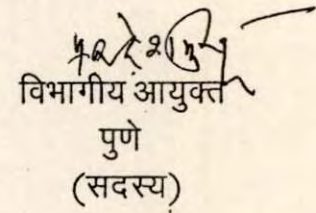 विभागीय आयुक्त
पुणे
(सदस्य)